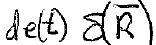 de(t) δ(R̅)